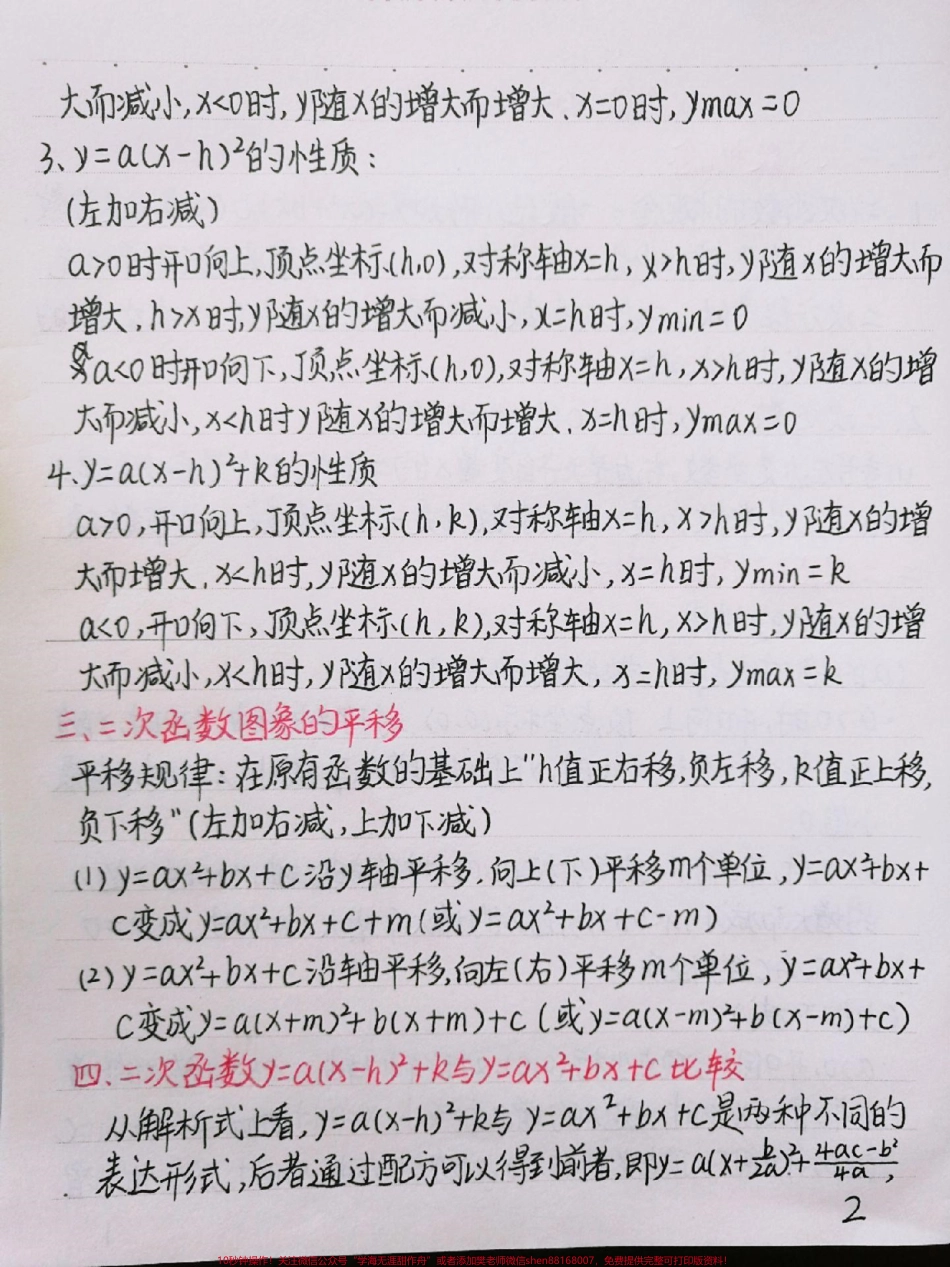 大而减小,x<0时,y随x的增大而增大.x=0时,ymax=0
3、y=a(x-h)²的性质:
(左加右减)
a>0时开口向上,顶点坐标(h,0),对称轴x=h,x>h时,y随x的增大而
增大,h>x时,y随x的增大而减小,x=h时,ymin=0
a<0时开口向下,顶点坐标(h,0),对称轴x=h,x>h时,y随x的增
大而减小,x<h时y随x的增大而增大.x=h时,ymax=0
4、y=a(x-h)²+k的性质
a>0,开口向上,顶点坐标(h,k),对称轴x=h,x>h时,y随x的增
大而增大.x<h时,y随x的增大而减小,x=h时,ymin=k
a<0,开口向下,顶点坐标(h,k),对称轴x=h,x>h时,y随x的增
大而减小,x<h时,y随x的增大而增大,x=h时,ymax=k
三、二次函数图象的平移
平移规律:在原有函数的基础上"h值正右移,负左移,k值正上移,
负下移"(左加右减,上加下减)
(1)y=ax²+bx+c沿y轴平移.向上(下)平移m个单位,y=ax²+bx+
c变成y=ax²+bx+c+m(或y=ax²+bx+c-m)
(2)y=ax²+bx+c沿轴平移,向左(右)平移m个单位,y=ax²+bx+
c变成y=a(x+m)²+b(x+m)+c(或y=a(x-m)²+b(x-m)+c)
四、二次函数y=a(x-h)²+k与y=ax²+bx+c比较
从解析式上看,y=a(x-h)²+k与y=ax²+bx+c是两种不同的
表达形式,后者通过配方可以得到前者,即y=a(x+b/2a)²+4ac-b²/4a,
2
10秒钟操作!关注微信公众号"学海无涯甜作舟"或者添加樊老师微信shen88168007,免费提供完整可打印版资料!